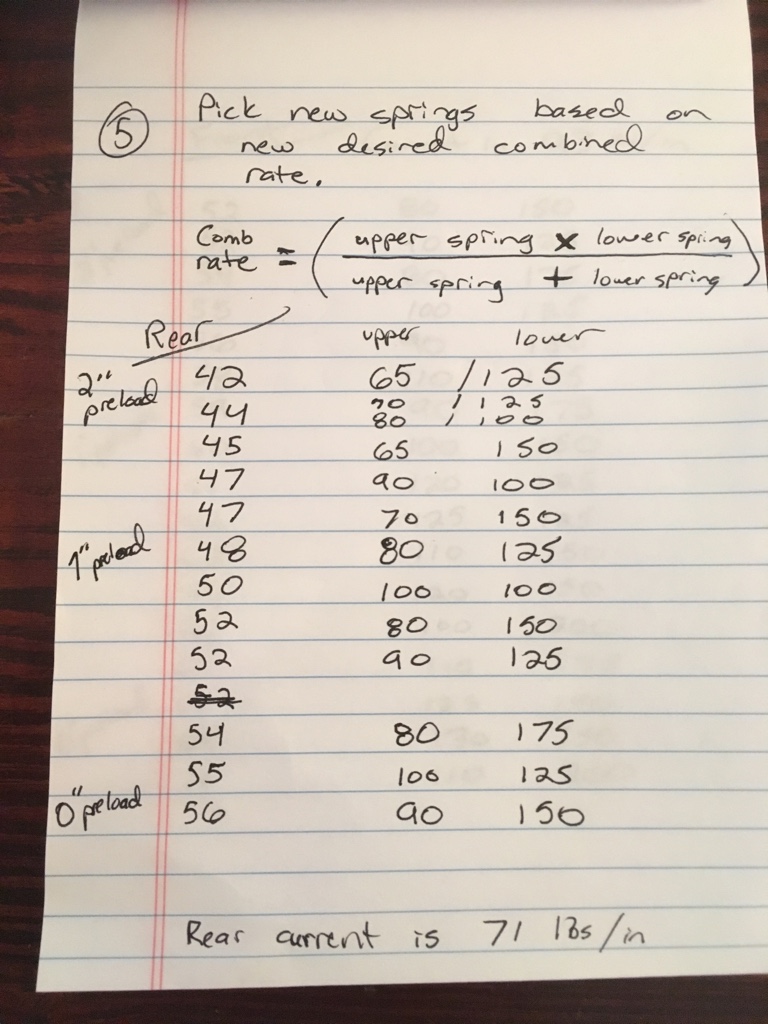 5 Pick new springs based on
new desired combined
rate.
Comb rate = ( upper spring x lower spring
upper spring + lower spring )
Rear upper lower
2" preload 42 65 / 125
70 / 125
44 80 / 100
45 65 150
47 90 100
47 70 150
1" preload 48 80 125
50 100 100
52 80 150
52 90 125
52
54 80 175
55 100 125
0" preload 56 90 150
Rear current is 71 lbs/in